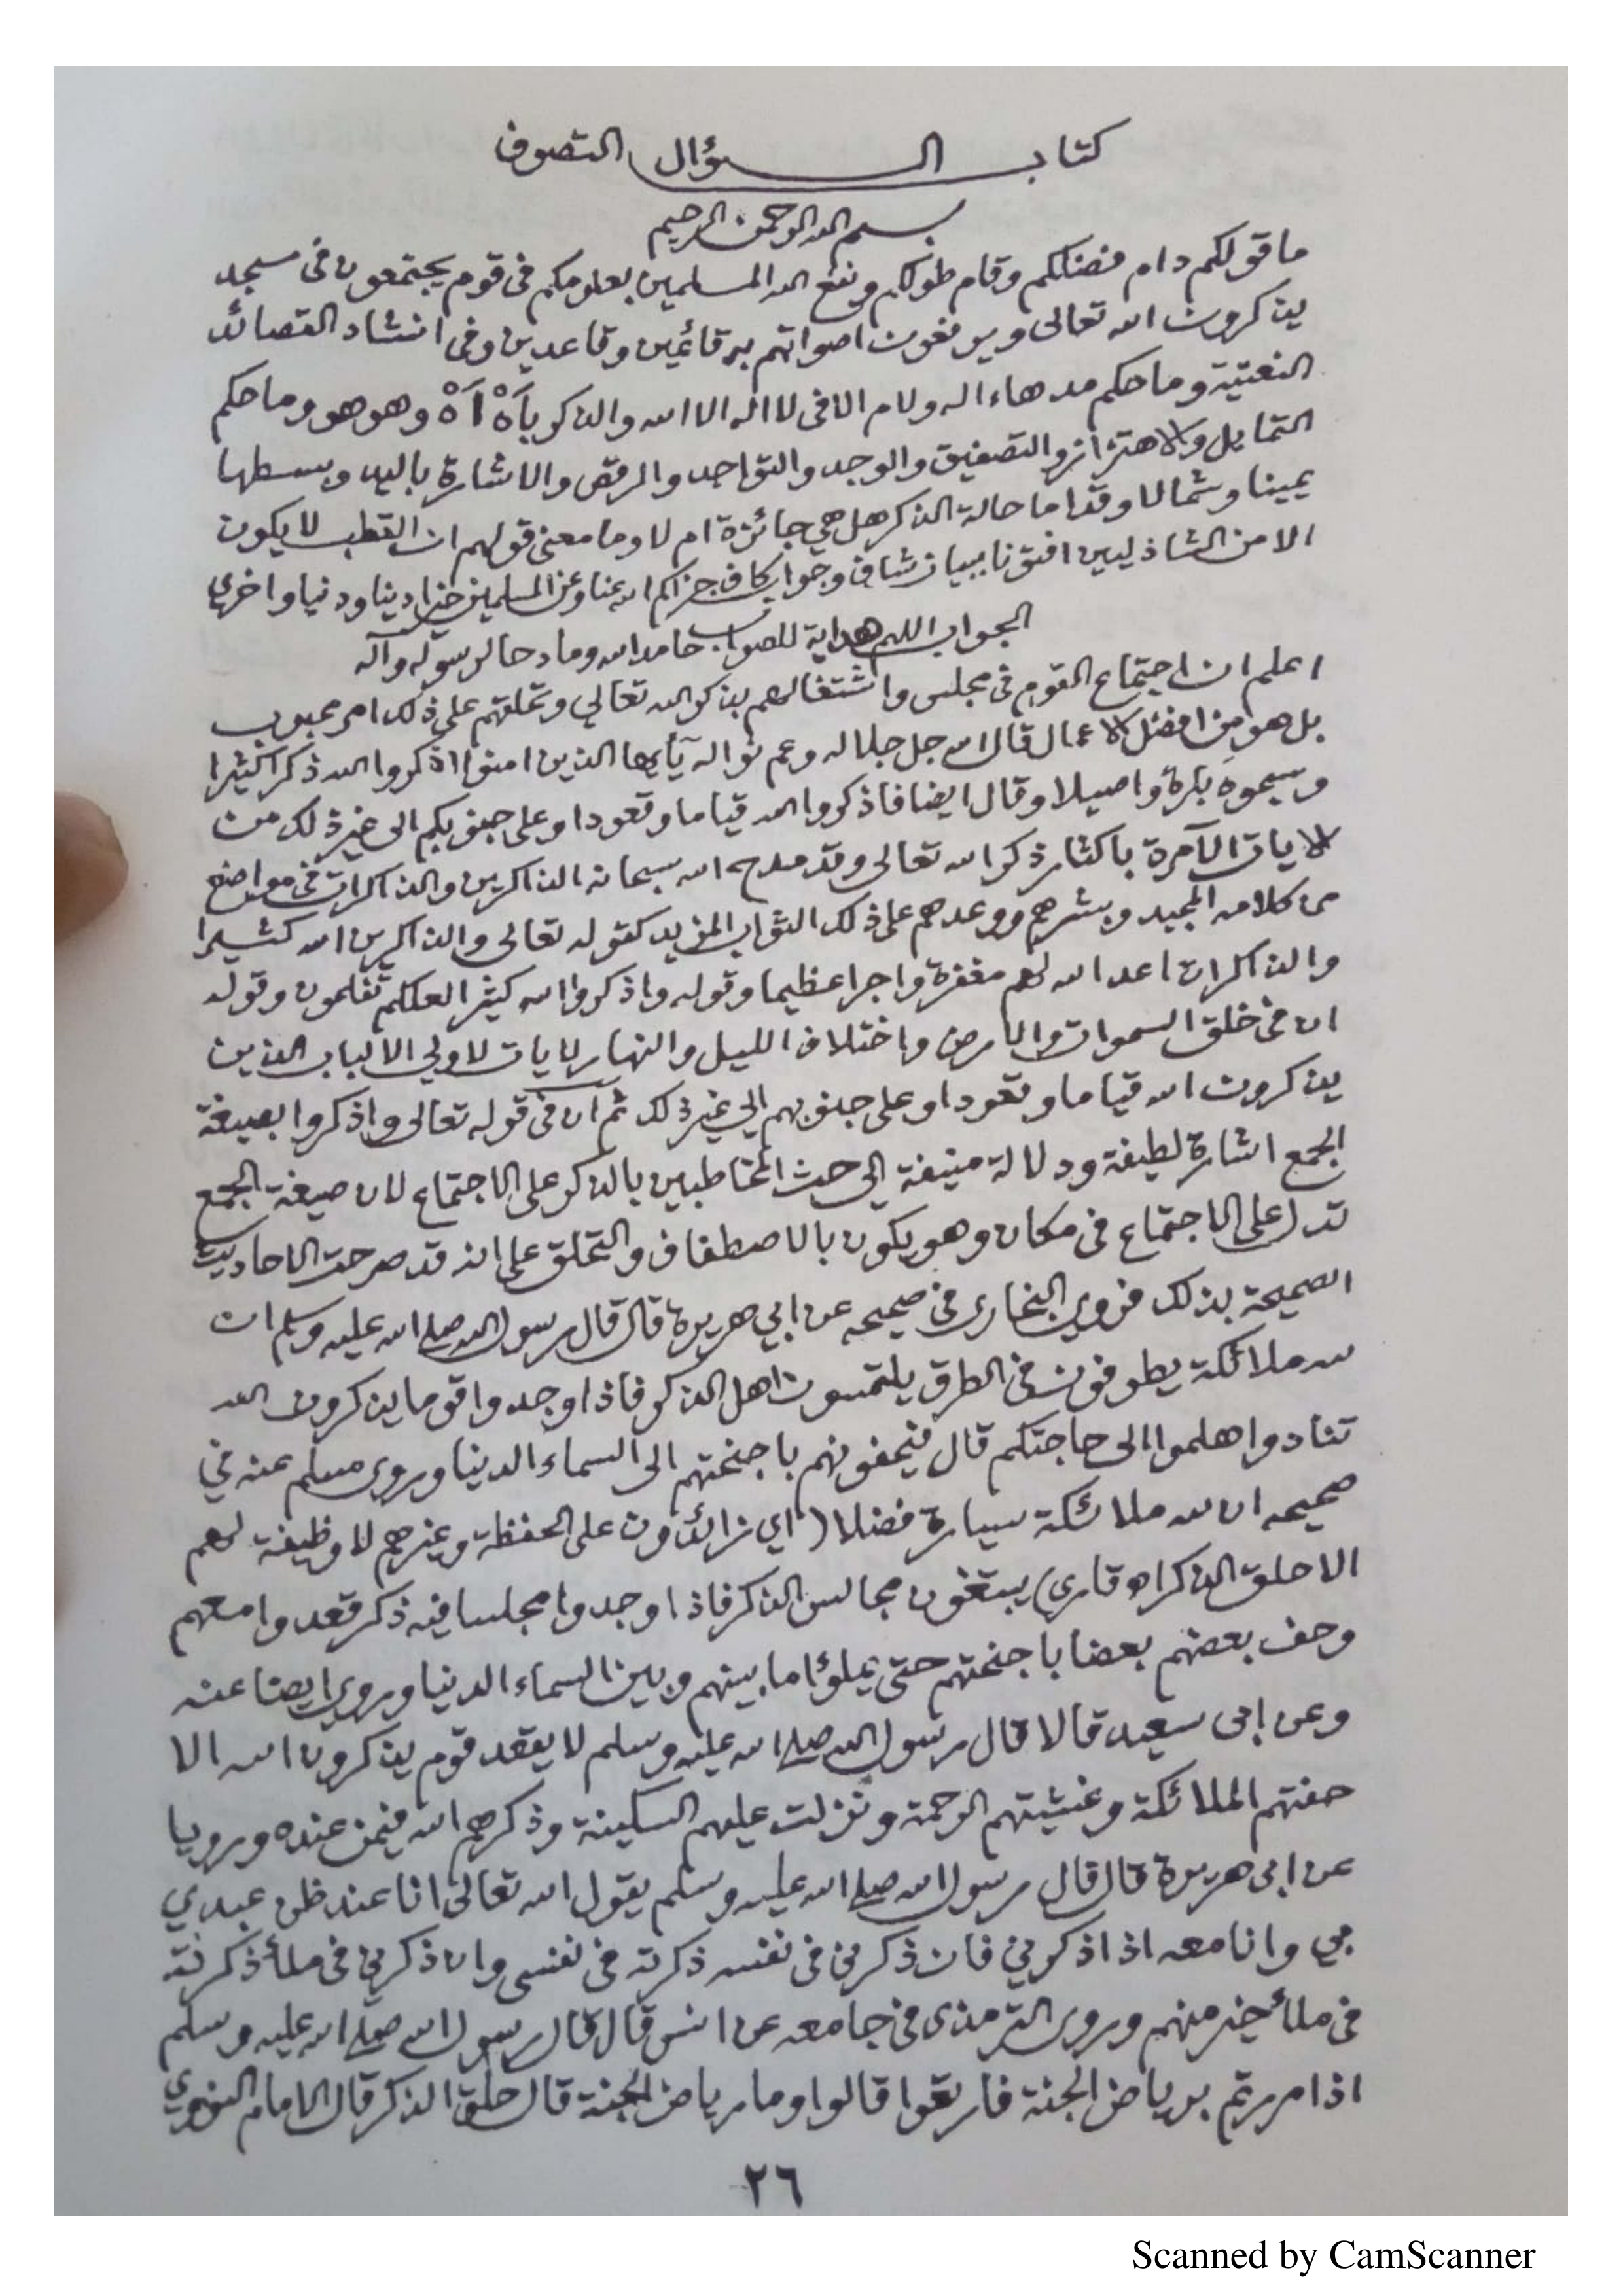 كتاب السؤال التصوف
بسم الله الرحمن الرحيم
ما قولكم دام فضلكم وقام طولكم ونفع الله المسلمين بعلومكم في قوم يجتمعون في مسجد
يذكرون الله تعالى ويرفعون اصواتهم به قائمين وقاعدين وفي انشاد القصائد
النعتية وما حكم مد هاء اله ولام الا في لا اله الا الله والذكر بأَهْ أَهْ وهو هو وما حكم
التمايل والاهتزاز والتصفيق والوجد والتواجد والرقص والاشارة باليد وبسطها
يمينا وشمالا وقداما حالة الذكر هل هي جائزة ام لا وما معنى قولهم ان القطب لا يكون
الا من الشاذليين افتونا ببيان شاف وجواب كاف جزاكم الله عنا وعن المسلمين خيرا دينا ودنيا واخرى
الجواب اللهم هداية للصواب حامدا لله ومادحا لرسوله وآله
اعلم ان اجتماع القوم في مجلس واشتغالهم بذكر الله تعالى وتحلقهم على ذلك امر محبوب
بل هو من افضل الاعمال قال الله جل جلاله وعم نواله يآيها الذين امنوا اذكروا الله ذكرا كثيرا
وسبحوه بكرة واصيلا وقال ايضا فاذكروا الله قياما وقعودا وعلى جنوبكم الى غير ذلك من
الايات الآمرة باكثار ذكر الله تعالى وقد مدح الله سبحانه الذاكرين والذاكرات في مواضع
من كلامه المجيد وبشرهم ووعدهم على ذلك الثواب المزيد كقوله تعالى والذاكرين الله كثيرا
والذاكرات اعد الله لهم مغفرة واجرا عظيما وقوله واذكروا الله كثيرا لعلكم تفلحون وقوله
ان في خلق السموات والارض واختلاف الليل والنهار لايات لاولي الالباب الذين
يذكرون الله قياما وقعودا وعلى جنوبهم الى غير ذلك ثم ان في قوله تعالى واذكروا بصيغة
الجمع اشارة لطيفة ودلالة منيفة الى حث المخاطبين بالذكر على الاجتماع لان صيغة الجمع
تدل على الاجتماع في مكان وهو يكون بالاصطفاف والتحلق على انه قد صرحت الاحاديث
الصحيحة بذلك فروى البخارى في صحيحه عن ابي هريرة قال قال رسول الله صلى الله عليه وسلم ان
لله ملائكة يطوفون في الطرق يلتمسون اهل الذكر فاذا وجدوا قوما يذكرون الله
تنادوا هلموا الى حاجتكم قال فيحفونهم باجنحتهم الى السماء الدنيا وروى مسلم عنه في
صحيحه ان لله ملائكة سيارة فضلا (اي زائدون على الحفظة وغيرهم لا وظيفة لهم
الا حلق الذكر اه قاري) يبتغون مجالس الذكر فاذا وجدوا مجلسا فيه ذكر قعدوا معهم
وحف بعضهم بعضا باجنحتهم حتى يملؤا ما بينهم وبين السماء الدنيا وروى ايضا عنه
وعن ابي سعيد قالا قال رسول الله صلى الله عليه وسلم لا يقعد قوم يذكرون الله الا
حفتهم الملائكة وغشيتهم الرحمة ونزلت عليهم السكينة وذكرهم الله فيمن عنده ورويا
عن ابي هريرة قال قال رسول الله صلى الله عليه وسلم يقول الله تعالى انا عند ظن عبدي
بي وانا معه اذا ذكرني فان ذكرني في نفسه ذكرته في نفسي وان ذكرني في ملأ ذكرته
في ملأ خير منهم وروى الترمذى في جامعه عن انس قال قال رسول الله صلى الله عليه وسلم
اذا مررتم برياض الجنة فارتعوا قالوا وما رياض الجنة قال حلق الذكر قال الامام النووي
٢٦
Scanned by CamScanner